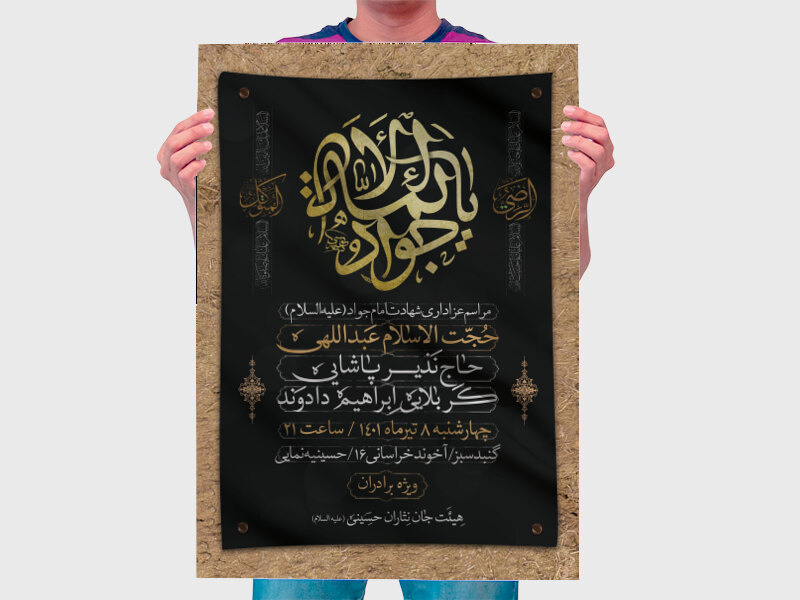 یا جواد الائمه
الرضی
المتوکل
مراسم عزاداری شهادت امام جواد (علیه السلام)
حُجّت الاسلام عَبداللهی
حاج نَذیر پاشایی
کربلایی ابراهیم دادوَند
چهارشنبه ۸ تیر ماه ۱۴۰۱ / ساعت ۲۱
گنبد سبز / آخوند خراسانی ۱۶ / حسینیه نمایی
ویژه برادران
هیئت جان نثاران حسینی (علیه السلام)